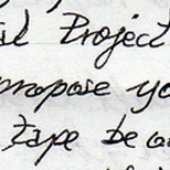 al Project
propose yo
tape be a